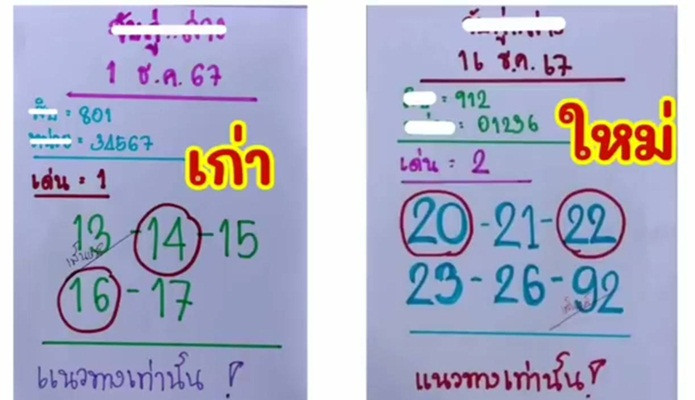 1 ธ.ค. 67
: 801
: 34567
เก่า
เด่น = 1
13 - 14 - 15
16 - 17
แนวทางเท่านั้น !
16 ธ.ค. 67
: 912
: 01236
ใหม่
เด่น = 2
20 - 21 - 22
23 - 26 - 92
แนวทางเท่านั้น !